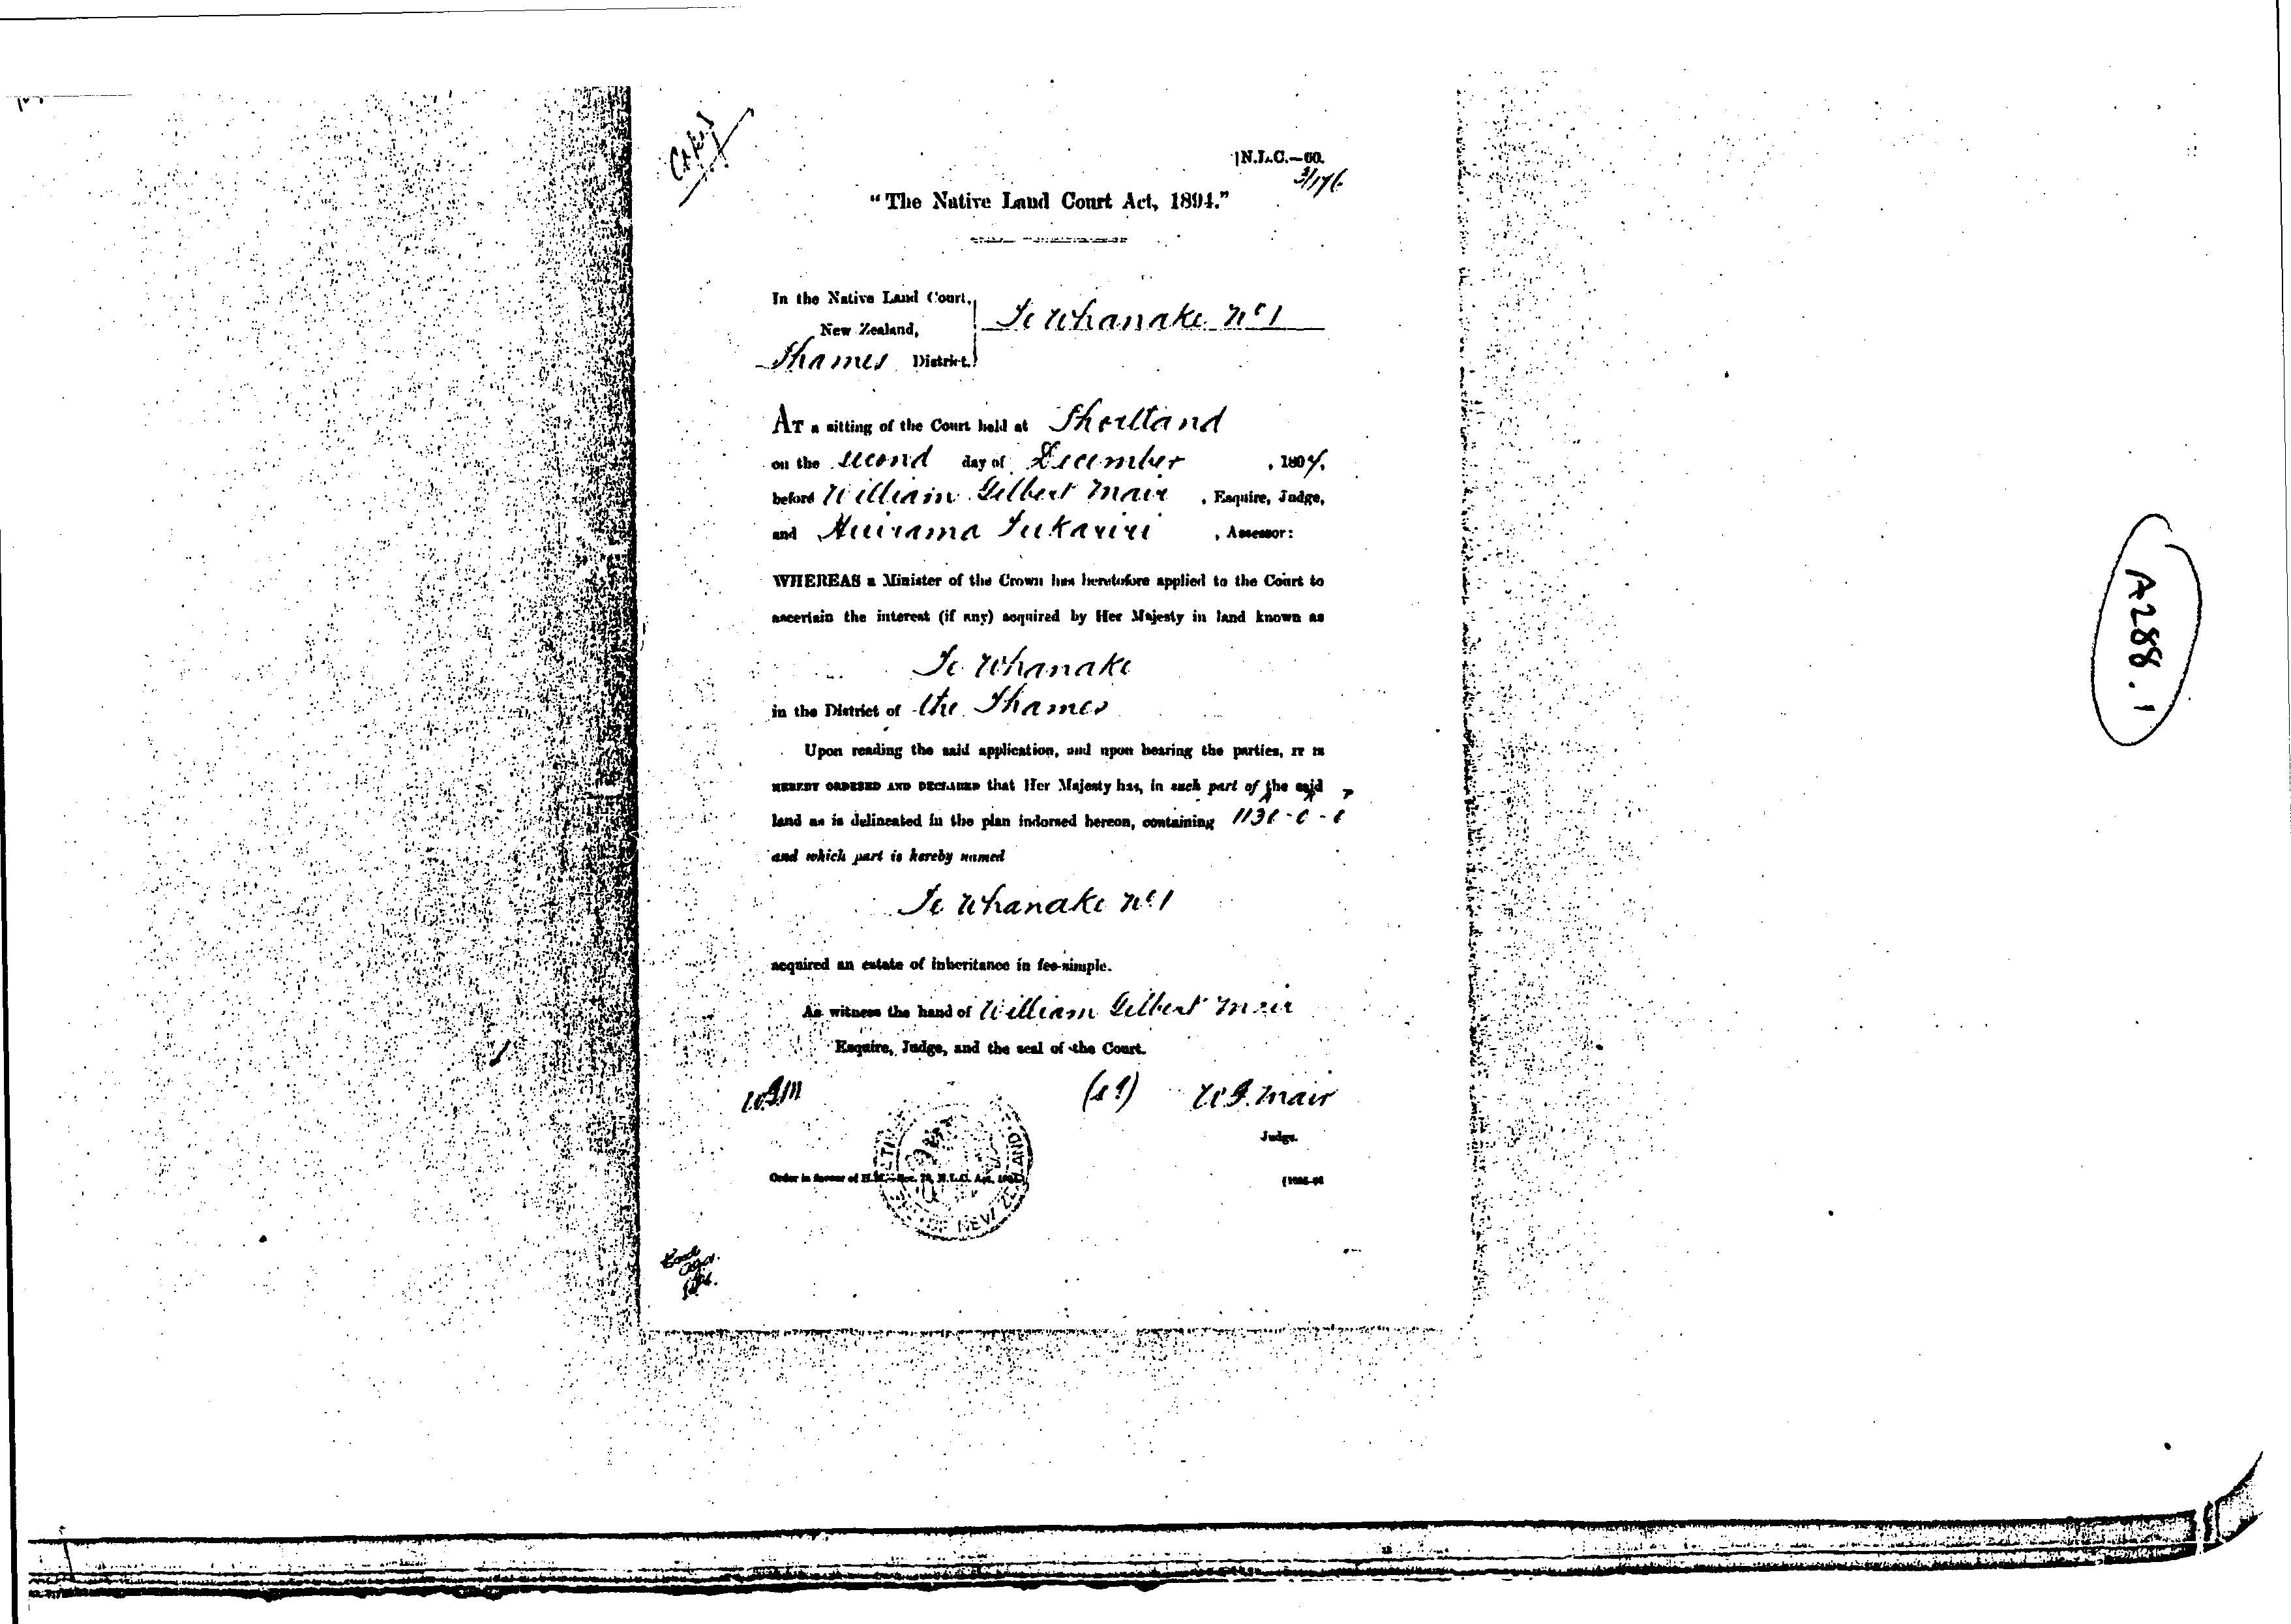 [N.L.C.—60.
3/176
"The Native Land Court Act, 1894."
In the Native Land Court,
New Zealand,
Te Whanake No 1
Thames District.
AT a sitting of the Court held at Shortland
on the second day of December , 189
before William Gilbert Mair , Esquire, Judge,
and Tukariri , Assessor:
WHEREAS a Minister of the Crown has heretofore applied to the Court to
ascertain the interest (if any) acquired by Her Majesty in land known as
Te Whanake
in the District of the Thames
Upon reading the said application, and upon hearing the parties, IT IS
HEREBY ORDERED AND DECLARED that Her Majesty has, in such part of the said
land as is delineated in the plan indorsed hereon, containing
and which part is hereby named
Te Whanake No 1
acquired an estate of inheritance in fee-simple.
As witness the hand of William Gilbert Mair
Esquire, Judge, and the seal of the Court.
WGM W G. Mair
Judge.
Order in favour of H.M.—Sec. N.L.C. Act,
NEW ZEALAND
A288.1